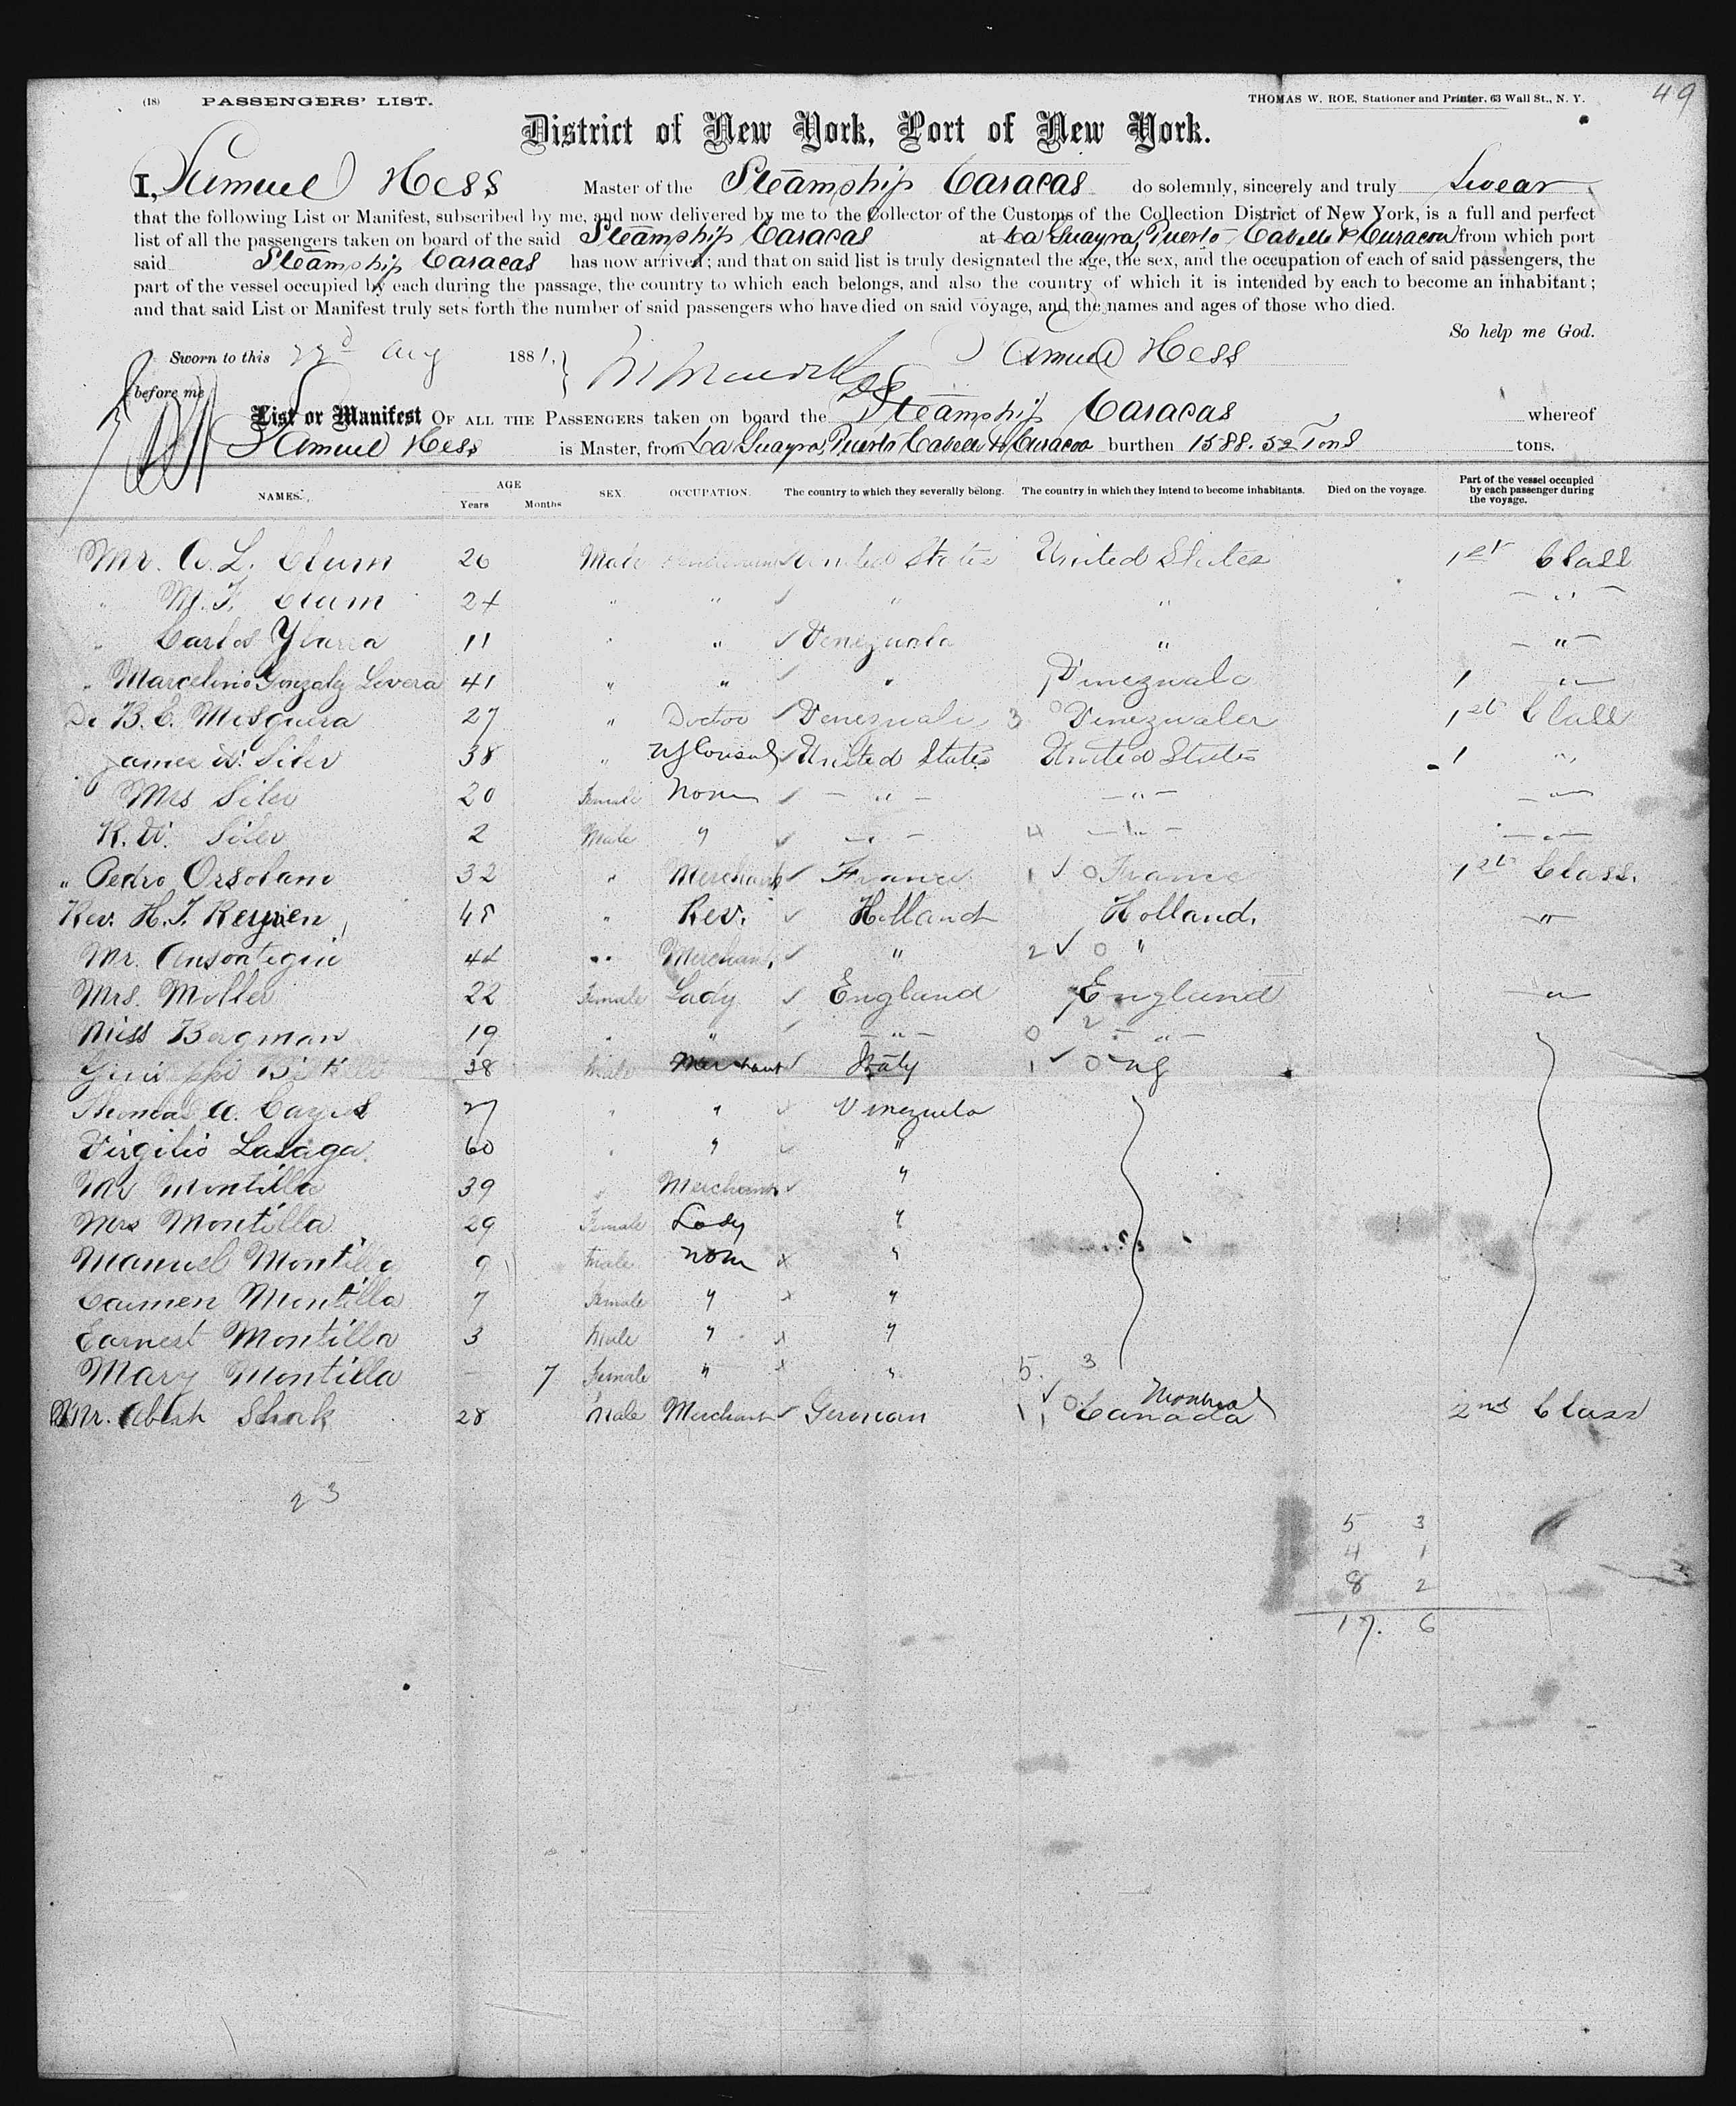 49
(18) PASSENGERS' LIST. THOMAS W. ROE, Stationer and Printer, 63 Wall St., N. Y.
District of New York, Port of New York.
I, Samuel Hess Master of the Steamship Caracas do solemnly, sincerely and truly Swear
that the following List or Manifest, subscribed by me, and now delivered by me to the Collector of the Customs of the Collection District of New York, is a full and perfect
list of all the passengers taken on board of the said Steamship Caracas at La Guayra, Puerto Cabello & Curacoa from which port
said Steamship Caracas has now arrived; and that on said list is truly designated the age, the sex, and the occupation of each of said passengers, the
part of the vessel occupied by each during the passage, the country to which each belongs, and also the country of which it is intended by each to become an inhabitant;
and that said List or Manifest truly sets forth the number of said passengers who have died on said voyage, and the names and ages of those who died.
So help me God.
Sworn to this 22d Aug 1881, Samuel Hess
before me
List or Manifest OF ALL THE PASSENGERS taken on board the Steamship Caracas whereof
Samuel Hess is Master, from La Guayra, Puerto Cabello & Curacoa burthen 1588.52 Tons tons.
NAMES. AGE Years Months SEX. OCCUPATION. The country to which they severally belong. The country in which they intend to become inhabitants. Died on the voyage. Part of the vessel occupied by each passenger during the voyage.
Mr. A. L. Clum 26 Male United States United States 1st Class
" M. F. Clum 24 " " " " "
" Carlos Ybarra 11 " " Venezuala " "
" Marcelino Gonzalez Levera 41 " " " Venezuala 1 "
Dr B. C. Mosquera 27 " Doctor Venezuala 3 0 Venezualer 1st Class
James W. Siler 38 " US Consul United States United States 1 "
Mrs Siler 20 Female None " " "
R. W. Siler 2 Male " " 4 " "
" Pedro Orsolani 32 " Merchant France 1 0 France 1st Class.
Rev. H. J. Reynen 48 " Rev. Holland Holland. "
Mr. Ansoategui 44 " Merchant. " 2 0 "
Mrs. Moller 22 Female Lady England England "
Miss Bergman 19 " " " 0 2 "
38 Male Merchant Italy 1 0
Thomas A. 27 " " Venezuela
Virgilio Lasaga. 60 " " "
Mr Montilla 39 " Merchant "
Mrs Montilla 29 Female Lady "
Manuel Montilla 9 Male None "
Carmen Montilla 7 Female " "
Earnest Montilla 3 Male " "
Mary Montilla 7 Female " " 5. 3
Mr. Shok 28 Male Merchant German 1 0 Montreal Canada 2nd Class
23
5 3
4 1
8 2
17. 6